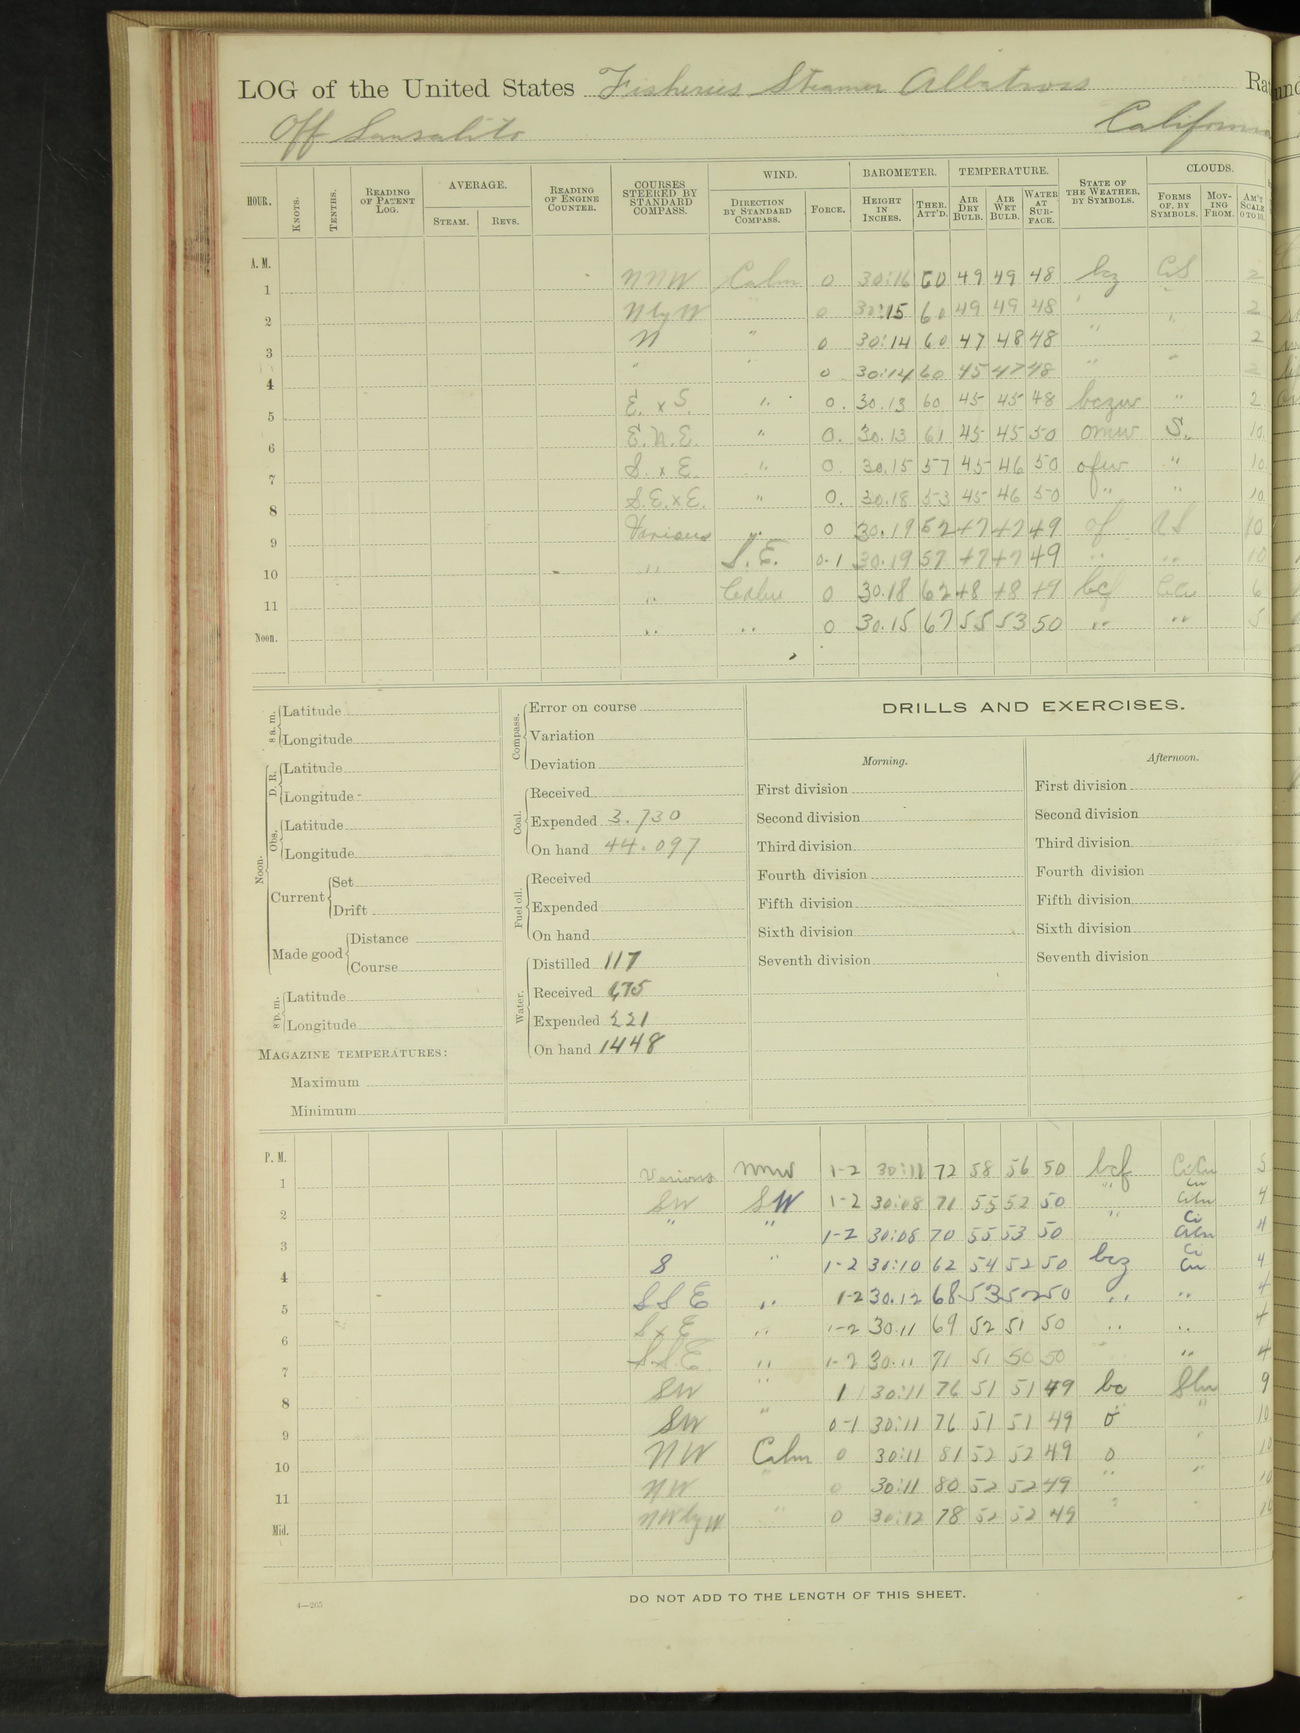 LOG of the United States Fisheries Steamer Albatross Ra
Off Sausalito California
HOUR. KNOTS. TENTHS. READING OF PATENT LOG. AVERAGE. STEAM. REVS. READING OF ENGINE COUNTER. COURSES STEERED BY STANDARD COMPASS. WIND. DIRECTION BY STANDARD COMPASS. FORCE. BAROMETER. HEIGHT IN INCHES. THER. ATT'D. TEMPERATURE. AIR DRY BULB. AIR WET BULB. WATER AT SURFACE. STATE OF THE WEATHER, BY SYMBOLS. CLOUDS. FORMS OF, BY SYMBOLS. MOVING FROM. AM'T SCALE 0 TO 10.
A. M.
1 NNW Calm 0 30:16 60 49 49 48 bcz CiS 2
2 N by W " 0 30:15 60 49 49 48 " " 2
3 N " 0 30:14 60 47 48 48 " " 2
4 " " 0 30:14 60 45 47 48 " " 2
5 E. x S. " 0. 30.13 60 45 45 48 bczw " 2
6 E.N.E. " 0. 30.13 61 45 45 50 omw S. 10.
7 S. x E. " 0. 30.15 57 45 46 50 ofw " 10
8 S.E. x E. " 0. 30.18 53 45 46 50 " " 10
9 Various " 0 30.19 52 47 47 49 of 10
10 " S.E. 0-1 30.19 57 47 47 49 " " 10
11 " Calm 0 30.18 62 48 48 49 bcf 6
Noon. " " 0 30.15 67 55 53 50 " " 5
8 a. m. Latitude
Longitude
Noon. D. R. Latitude
Longitude
Obs. Latitude
Longitude
Current Set
Drift
Made good Distance
Course
8 p. m. Latitude
Longitude
MAGAZINE TEMPERATURES:
Maximum
Minimum
Compass. Error on course
Variation
Deviation
Coal. Received
Expended 3.730
On hand 44.097
Fuel oil. Received
Expended
On hand
Water. Distilled 117
Received 675
Expended 221
On hand 1448
DRILLS AND EXERCISES.
Morning. Afternoon.
First division First division
Second division Second division
Third division Third division
Fourth division Fourth division
Fifth division Fifth division
Sixth division Sixth division
Seventh division Seventh division
P. M.
1 Various NNW 1-2 30:11 72 58 56 50 bcf CiCu 5
2 SW SW 1-2 30:08 71 55 52 50 " Cu CiCu 4
3 " " 1-2 30:08 70 55 53 50 " Ci CiCu 4
4 S " 1-2 30:10 62 54 52 50 bcz Ci Cu 4
5 SSE " 1-2 30.12 68 53 52 50 " " 4
6 S x E " 1-2 30.11 69 52 51 50 " " 4
7 S.S.E. " 1-2 30.11 71 51 50 50 " 4
8 SW " 1 30:11 76 51 51 49 bc 9
9 SW " 0-1 30:11 76 51 51 49 o " 10
10 NW Calm 0 30:11 81 52 52 49 o " 10
11 NW " 0 30:11 80 52 52 49 " " 10
Mid. NW by W " 0 30:12 78 52 52 49 " " 10
4—205
DO NOT ADD TO THE LENGTH OF THIS SHEET.